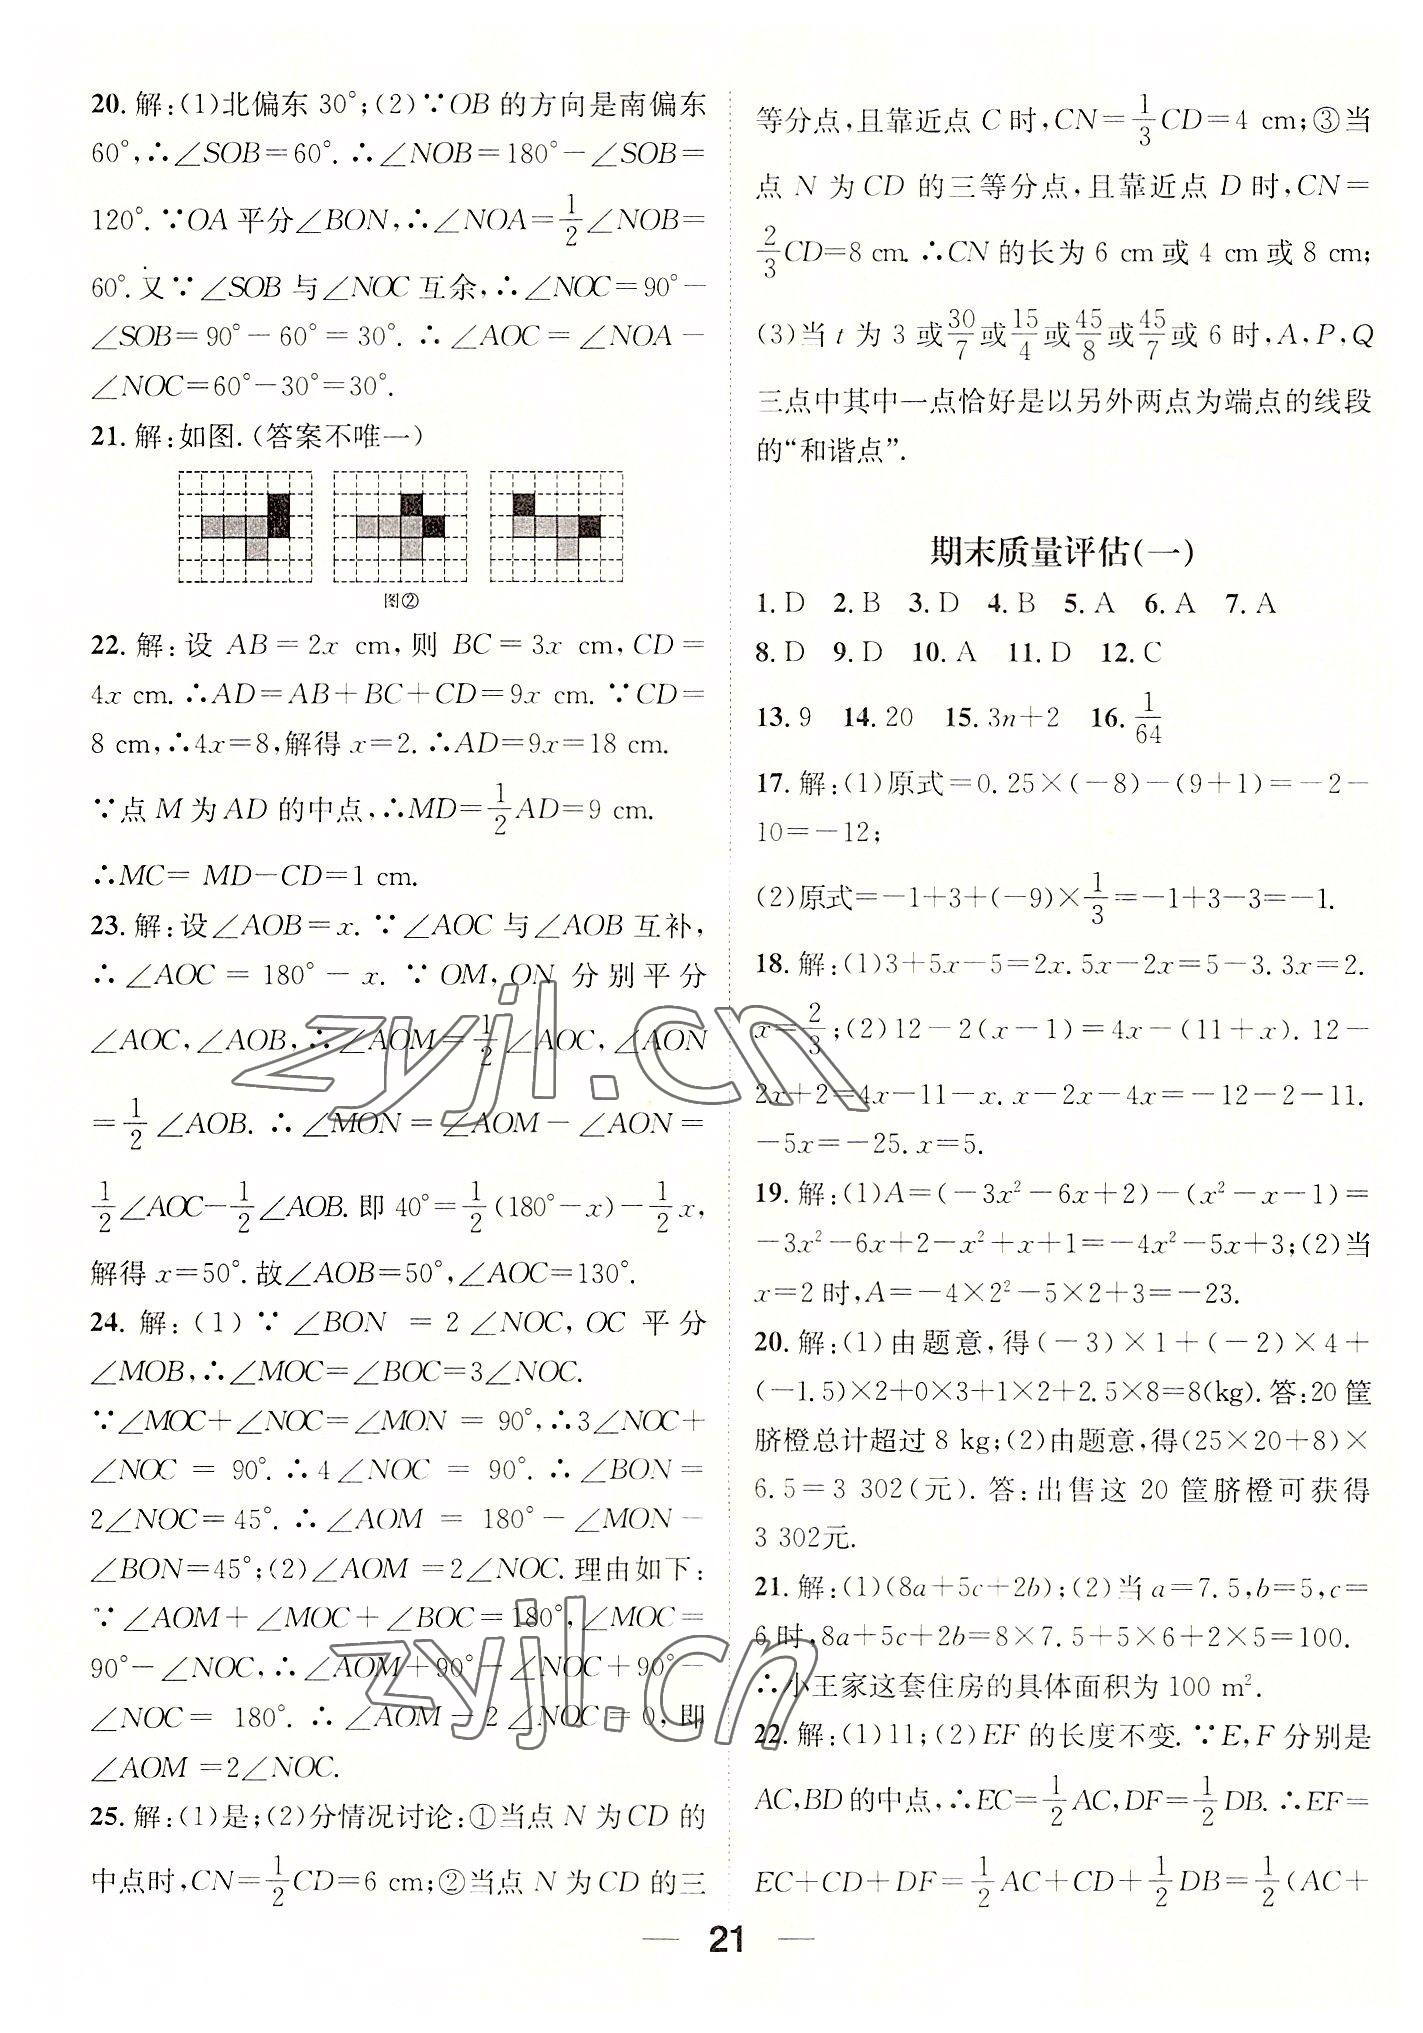 20. 解:(1)北偏东 30°;(2)∵OB 的方向是南偏东
60°,∴∠SOB=60°. ∴∠NOB=180°-∠SOB=
120°. ∵OA 平分∠BON,∴∠NOA=1/2∠NOB=
60°. 又∵∠SOB 与∠NOC 互余,∴∠NOC=90°-
∠SOB=90°-60°=30°. ∴∠AOC=∠NOA-
∠NOC=60°-30°=30°.
21. 解:如图.(答案不唯一)
图②
22. 解:设 AB=2x cm,则 BC=3x cm,CD=
4x cm. ∴AD=AB+BC+CD=9x cm. ∵CD=
8 cm,∴4x=8,解得 x=2. ∴AD=9x=18 cm.
∵点 M 为 AD 的中点,∴MD=1/2AD=9 cm.
∴MC= MD-CD=1 cm.
23. 解:设∠AOB=x. ∵∠AOC 与∠AOB 互补,
∴∠AOC=180°-x. ∵OM,ON 分别平分
∠AOC,∠AOB,∴∠AOM=1/2∠AOC,∠AON
=1/2∠AOB. ∴∠MON=∠AOM-∠AON=
1/2∠AOC-1/2∠AOB. 即 40°=1/2(180°-x)-1/2x,
解得 x=50°. 故∠AOB=50°,∠AOC=130°.
24. 解:(1)∵∠BON =2∠NOC,OC 平分
∠MOB,∴∠MOC=∠BOC=3∠NOC.
∵∠MOC+∠NOC=∠MON = 90°,∴3∠NOC+
∠NOC = 90°. ∴4∠NOC = 90°. ∴∠BON=
2∠NOC=45°. ∴∠AOM = 180°-∠MON-
∠BON=45°;(2)∠AOM =2∠NOC. 理由如下:
∵∠AOM+∠MOC+∠BOC=180°,∠MOC=
90°-∠NOC,∴∠AOM+90°-∠NOC+90°-
∠NOC= 180°. ∴∠AOM-2∠NOC=0,即
∠AOM =2∠NOC.
25. 解:(1)是;(2)分情况讨论:①当点 N 为 CD 的
中点时,CN=1/2CD=6 cm;②当点 N 为 CD 的三
等分点,且靠近点 C 时,CN=1/3CD=4 cm;③当
点 N 为 CD 的三等分点,且靠近点 D 时,CN=
2/3CD=8 cm. ∴CN 的长为 6 cm或 4 cm或 8 cm;
(3)当 t 为 3 或30/7或15/4或45/8或45/7或 6 时,A,P,Q
三点中其中一点恰好是以另外两点为端点的线段
的“和谐点”.
期末质量评估(一)
1. D 2. B 3. D 4. B 5. A 6. A 7. A
8. D 9. D 10. A 11. D 12. C
13. 9 14. 20 15. 3n+2 16. 1/64
17. 解:(1)原式=0.25×(-8)-(9+1)=-2-
10=-12;
(2)原式=-1+3+(-9)×1/3=-1+3-3=-1.
18. 解:(1)3+5x-5=2x. 5x-2x=5-3. 3x=2.
x=2/3;(2)12-2(x-1)=4x-(11+x). 12-
2x+2=4x-11-x. x-2x-4x=-12-2-11.
-5x=-25. x=5.
19. 解:(1)A=(-3x²-6x+2)-(x²-x-1)=
-3x²-6x+2-x²+x+1=-4x²-5x+3;(2)当
x=2 时,A=-4×2²-5×2+3=-23.
20. 解:(1)由题意,得(-3)×1+(-2)×4+
(-1.5)×2+0×3+1×2+2.5×8=8(kg). 答:20 筐
脐橙总计超过 8 kg;(2)由题意,得(25×20+8)×
6.5=3 302(元). 答:出售这 20 筐脐橙可获得
3 302元.
21. 解:(1)(8a+5c+2b);(2)当 a=7.5,b=5,c=
6 时,8a+5c+2b=8×7.5+5×6+2×5=100.
∴小王家这套住房的具体面积为 100 m².
22. 解:(1)11;(2)EF 的长度不变. ∵E,F 分别是
AC,BD 的中点,∴EC=1/2AC,DF=1/2DB. ∴EF=
EC+CD+DF=1/2AC+CD+1/2DB=1/2(AC+
21
zyjl.cn
zyjl.cn